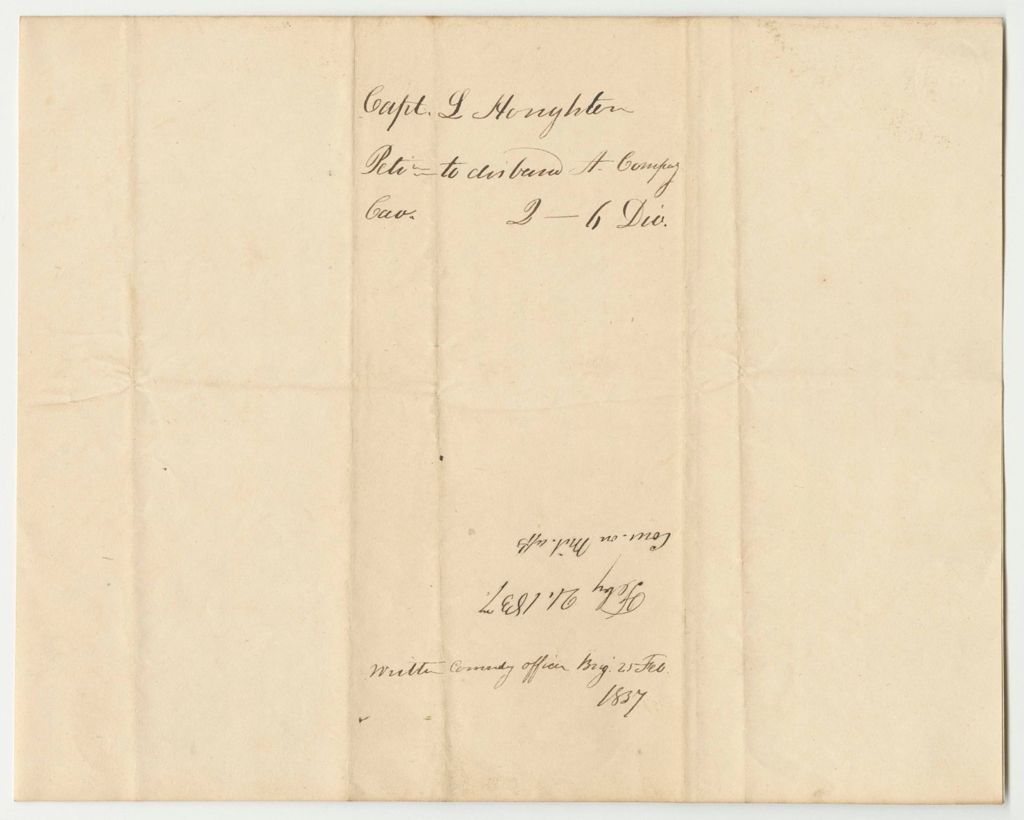 Capt. L Houghton
Petin to disband A. Compay
Cav. 2 — 6 Div.
Com. on Mil. affs
Feby 21. 1837.
Written Comndg officer Brig. 25 Feb.
1837